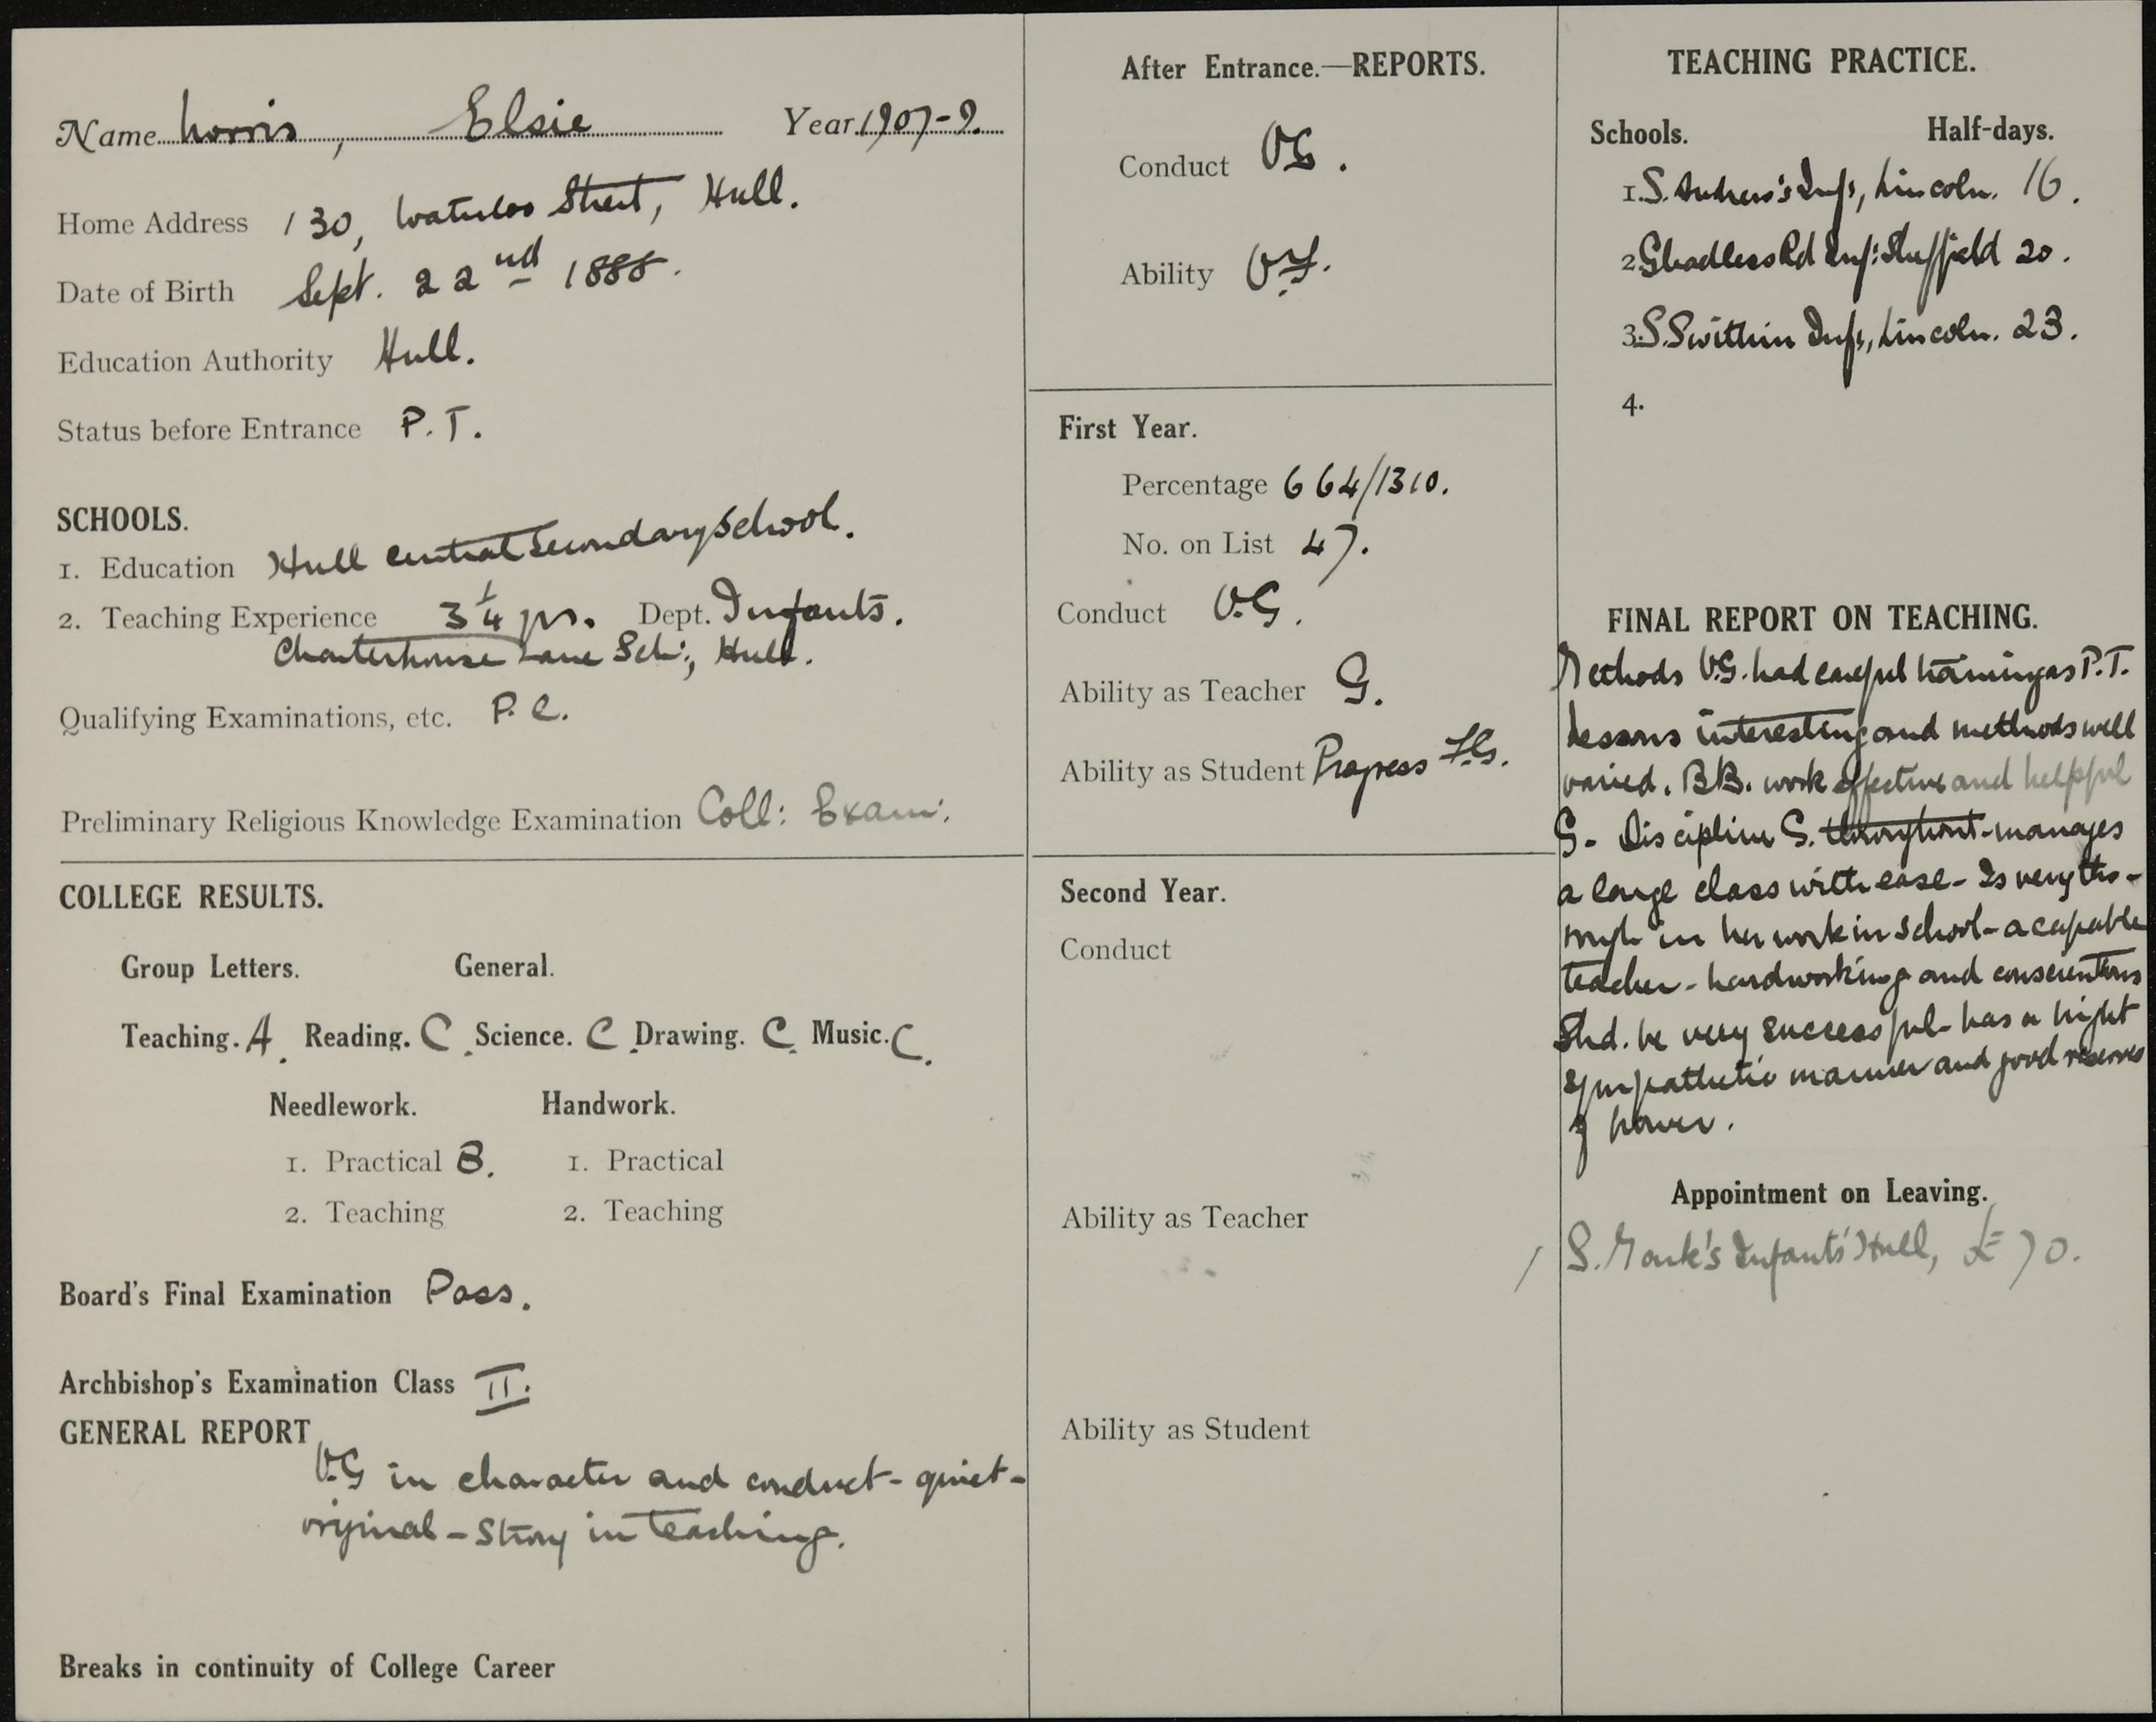 Name Morris, Elsie Year 1907-9.
Home Address 130, Waterloo Street, Hull.
Date of Birth Sept. 22nd 1888.
Education Authority Hull.
Status before Entrance P.T.
SCHOOLS.
1. Education Hull Central Secondary School.
2. Teaching Experience 3 1/4 yrs. Dept. Infants.
Charterhouse Lane Sch:, Hull.
Qualifying Examinations, etc. P.C.
Preliminary Religious Knowledge Examination Coll: Exam:
COLLEGE RESULTS.
Group Letters. General.
Teaching. A. Reading. C. Science. C. Drawing. C. Music. C.
Needlework. Handwork.
1. Practical B. 1. Practical
2. Teaching 2. Teaching
Board's Final Examination Pass.
Archbishop's Examination Class II.
GENERAL REPORT
V.G in character and conduct - quiet -
original - strong in teaching.
Breaks in continuity of College Career
After Entrance.—REPORTS.
Conduct VG.
Ability
First Year.
Percentage 664/1310.
No. on List 47.
Conduct V.G.
Ability as Teacher G.
Ability as Student Progress F.G.
Second Year.
Conduct
Ability as Teacher
Ability as Student
TEACHING PRACTICE.
Schools. Half-days.
1. S. Andrew's Infs, Lincoln. 16.
2. Gleadless Rd Inf: Sheffield 20.
3. S. Swithin Infs, Lincoln. 23.
4.
FINAL REPORT ON TEACHING.
Methods V.G. had careful training as P.T.
Lessons interesting and methods well
varied. BB. work effective and helpful
G. Discipline G. throughout - manages
a large class with ease - Is very tho-
rough in her work in school - a capable
teacher - hardworking and conscientious
Shd. be very successful - has a bright
sympathetic manner and good reserves
of power.
Appointment on Leaving.
S. Mark's Infants' Hull, £70.